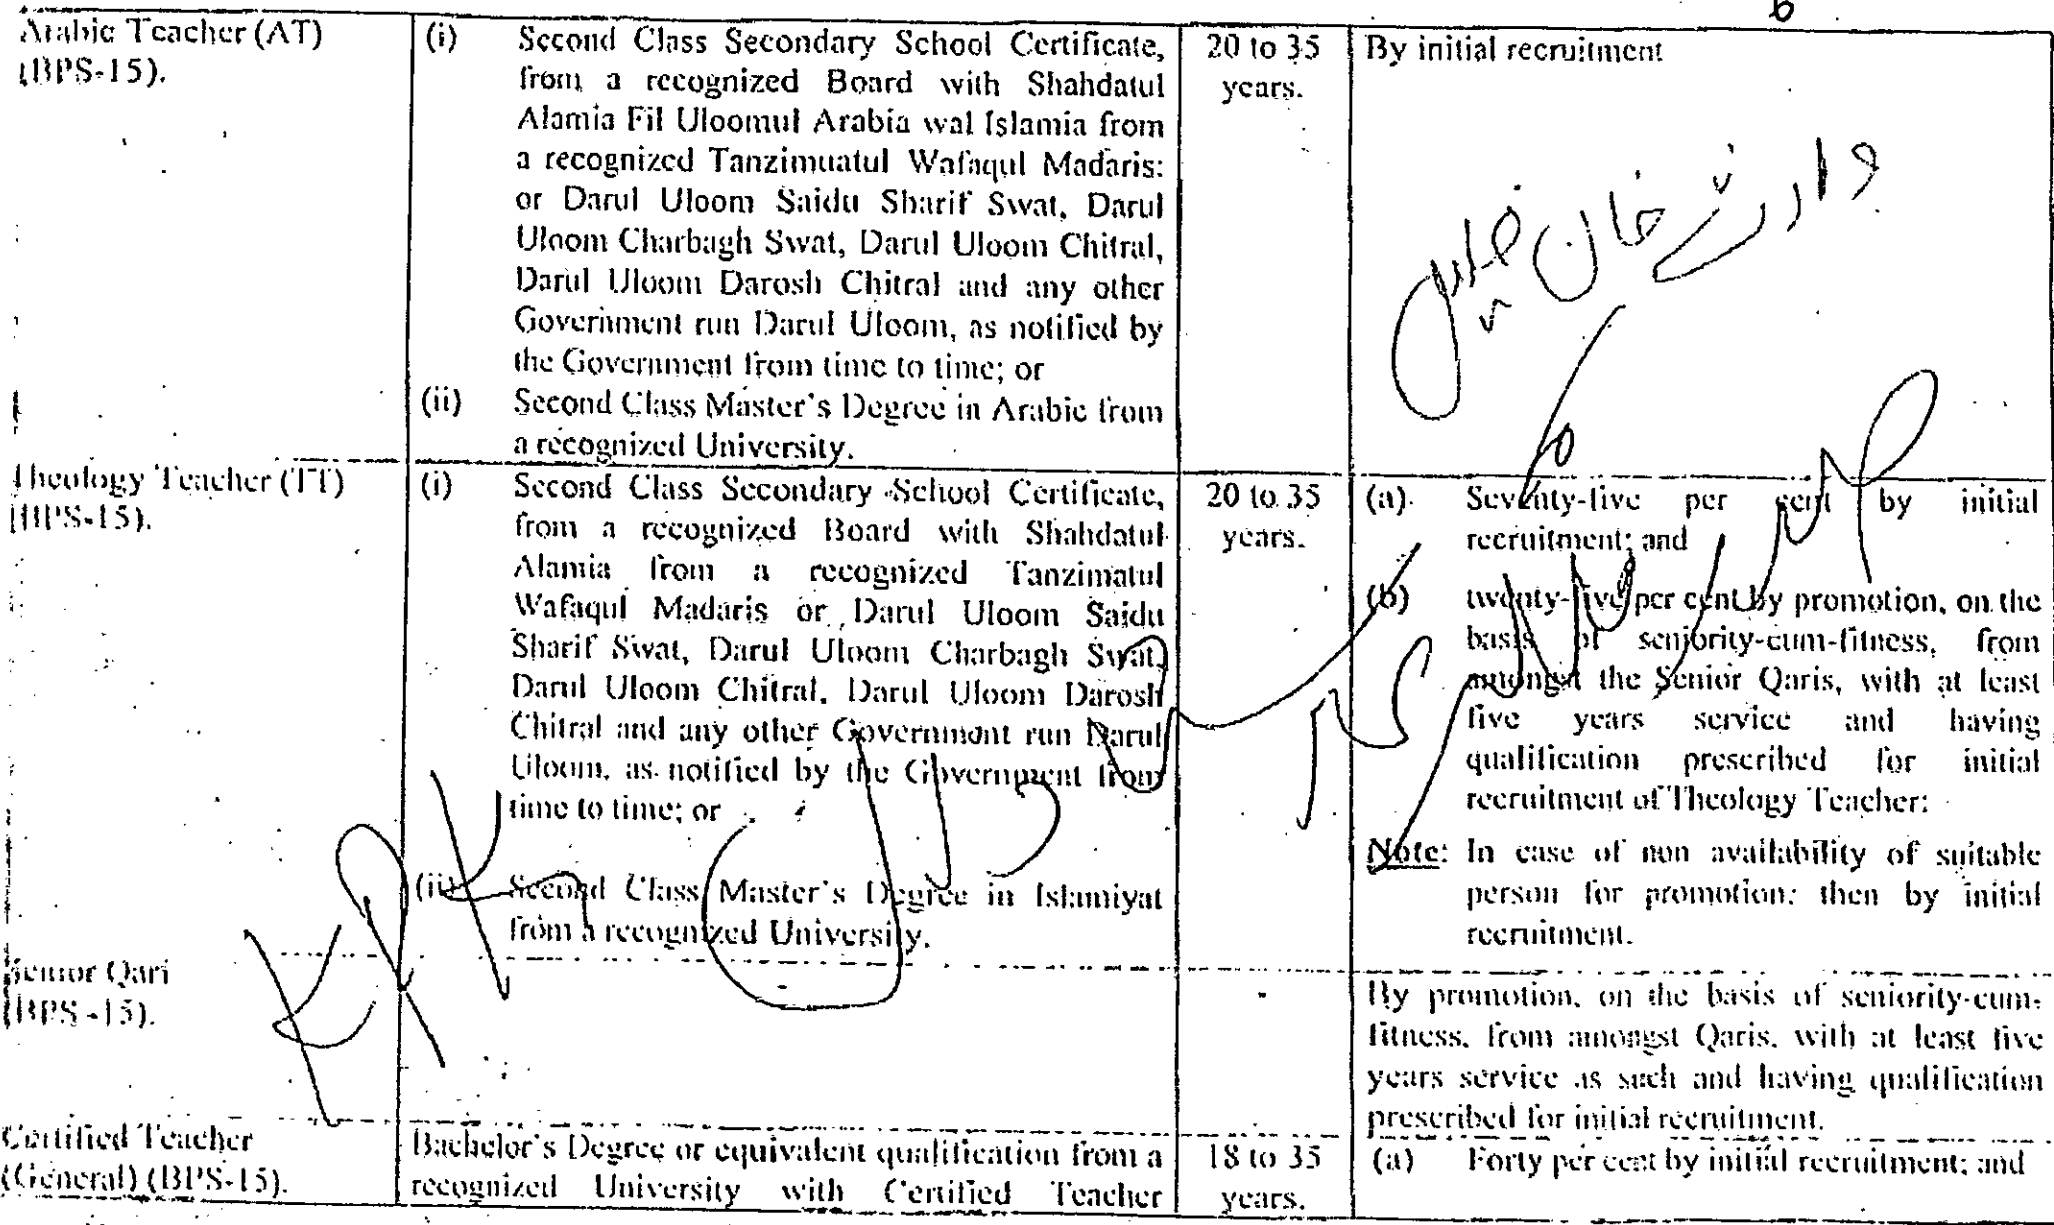 6
Arabic Teacher (AT)
(BPS-15).
(i) Second Class Secondary School Certificate,
from a recognized Board with Shahdatul
Alamia Fil Uloomul Arabia wal Islamia from
a recognized Tanzimuatul Wafaqul Madaris:
or Darul Uloom Saidu Sharif Swat, Darul
Uloom Charbagh Swat, Darul Uloom Chitral,
Darul Uloom Darosh Chitral and any other
Government run Darul Uloom, as notified by
the Government from time to time; or
(ii) Second Class Master's Degree in Arabic from
a recognized University.
20 to 35
years.
By initial recruitment
وارث خان
Theology Teacher (TT)
(BPS-15).
(i) Second Class Secondary School Certificate,
from a recognized Board with Shahdatul
Alamia from a recognized Tanzimatul
Wafaqul Madaris or Darul Uloom Saidu
Sharif Swat, Darul Uloom Charbagh Swat,
Darul Uloom Chitral, Darul Uloom Darosh
Chitral and any other Government run Darul
Uloom, as notified by the Government from
time to time; or
(ii) Second Class Master's Degree in Islamiyat
from a recognized University.
20 to 35
years.
(a) Seventy-five per cent by initial
recruitment; and
(b) twenty-five per cent by promotion, on the
basis of seniority-cum-fitness, from
amongst the Senior Qaris, with at least
five years service and having
qualification prescribed for initial
recruitment of Theology Teacher:
Note: In case of non availability of suitable
person for promotion: then by initial
recruitment.
KPK
Senior Qari
(BPS -15).
-
-
By promotion, on the basis of seniority-cum-
fitness, from amongst Qaris, with at least five
years service as such and having qualification
prescribed for initial recruitment.
Certified Teacher
(General) (BPS-15).
Bachelor's Degree or equivalent qualification from a
recognized University with Certified Teacher
18 to 35
years.
(a) Forty per cent by initial recruitment; and